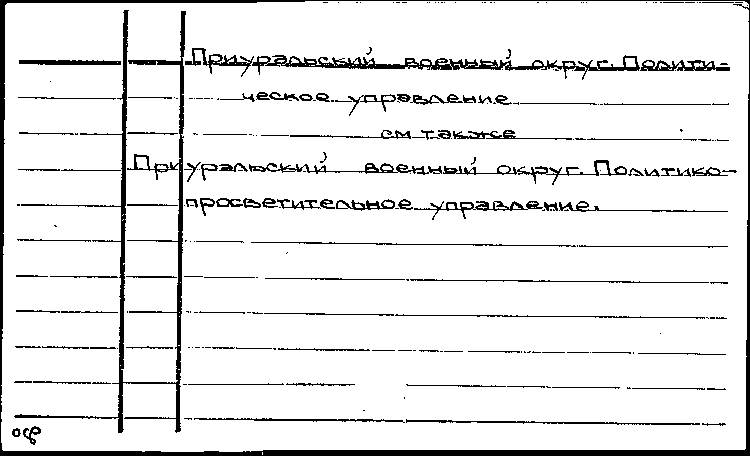 Приуральский военный округ. Полити-
ческое управление
см также
Приуральский военный округ. Политико-
просветительное управление.
осф